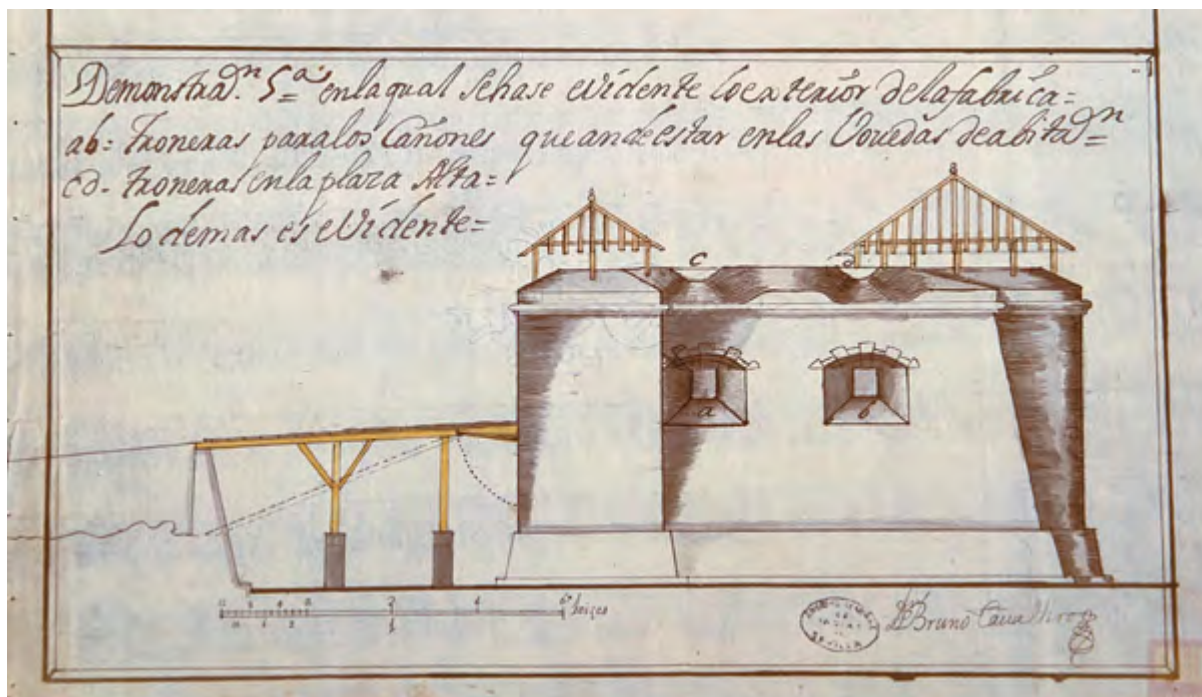 Demonstra.ᵒⁿ 5ª enlaqual Sehase evidente loexterior delafabrica=
ab= troneras paralos Cañones queandeestar enlas Vovedas deabita.ᵒⁿ=
cd. troneras enla plaza Alta=
Lo demas es evidente=
c
d
a
b
toises
SEVILLA
Bruno Cavallero